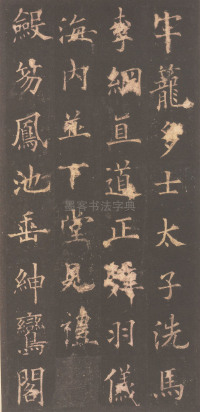 牢籠多士太子洗馬
李綱直道正辭羽儀
海内並下堂見禮
笏鳳池垂紳鸞閣
书法字典